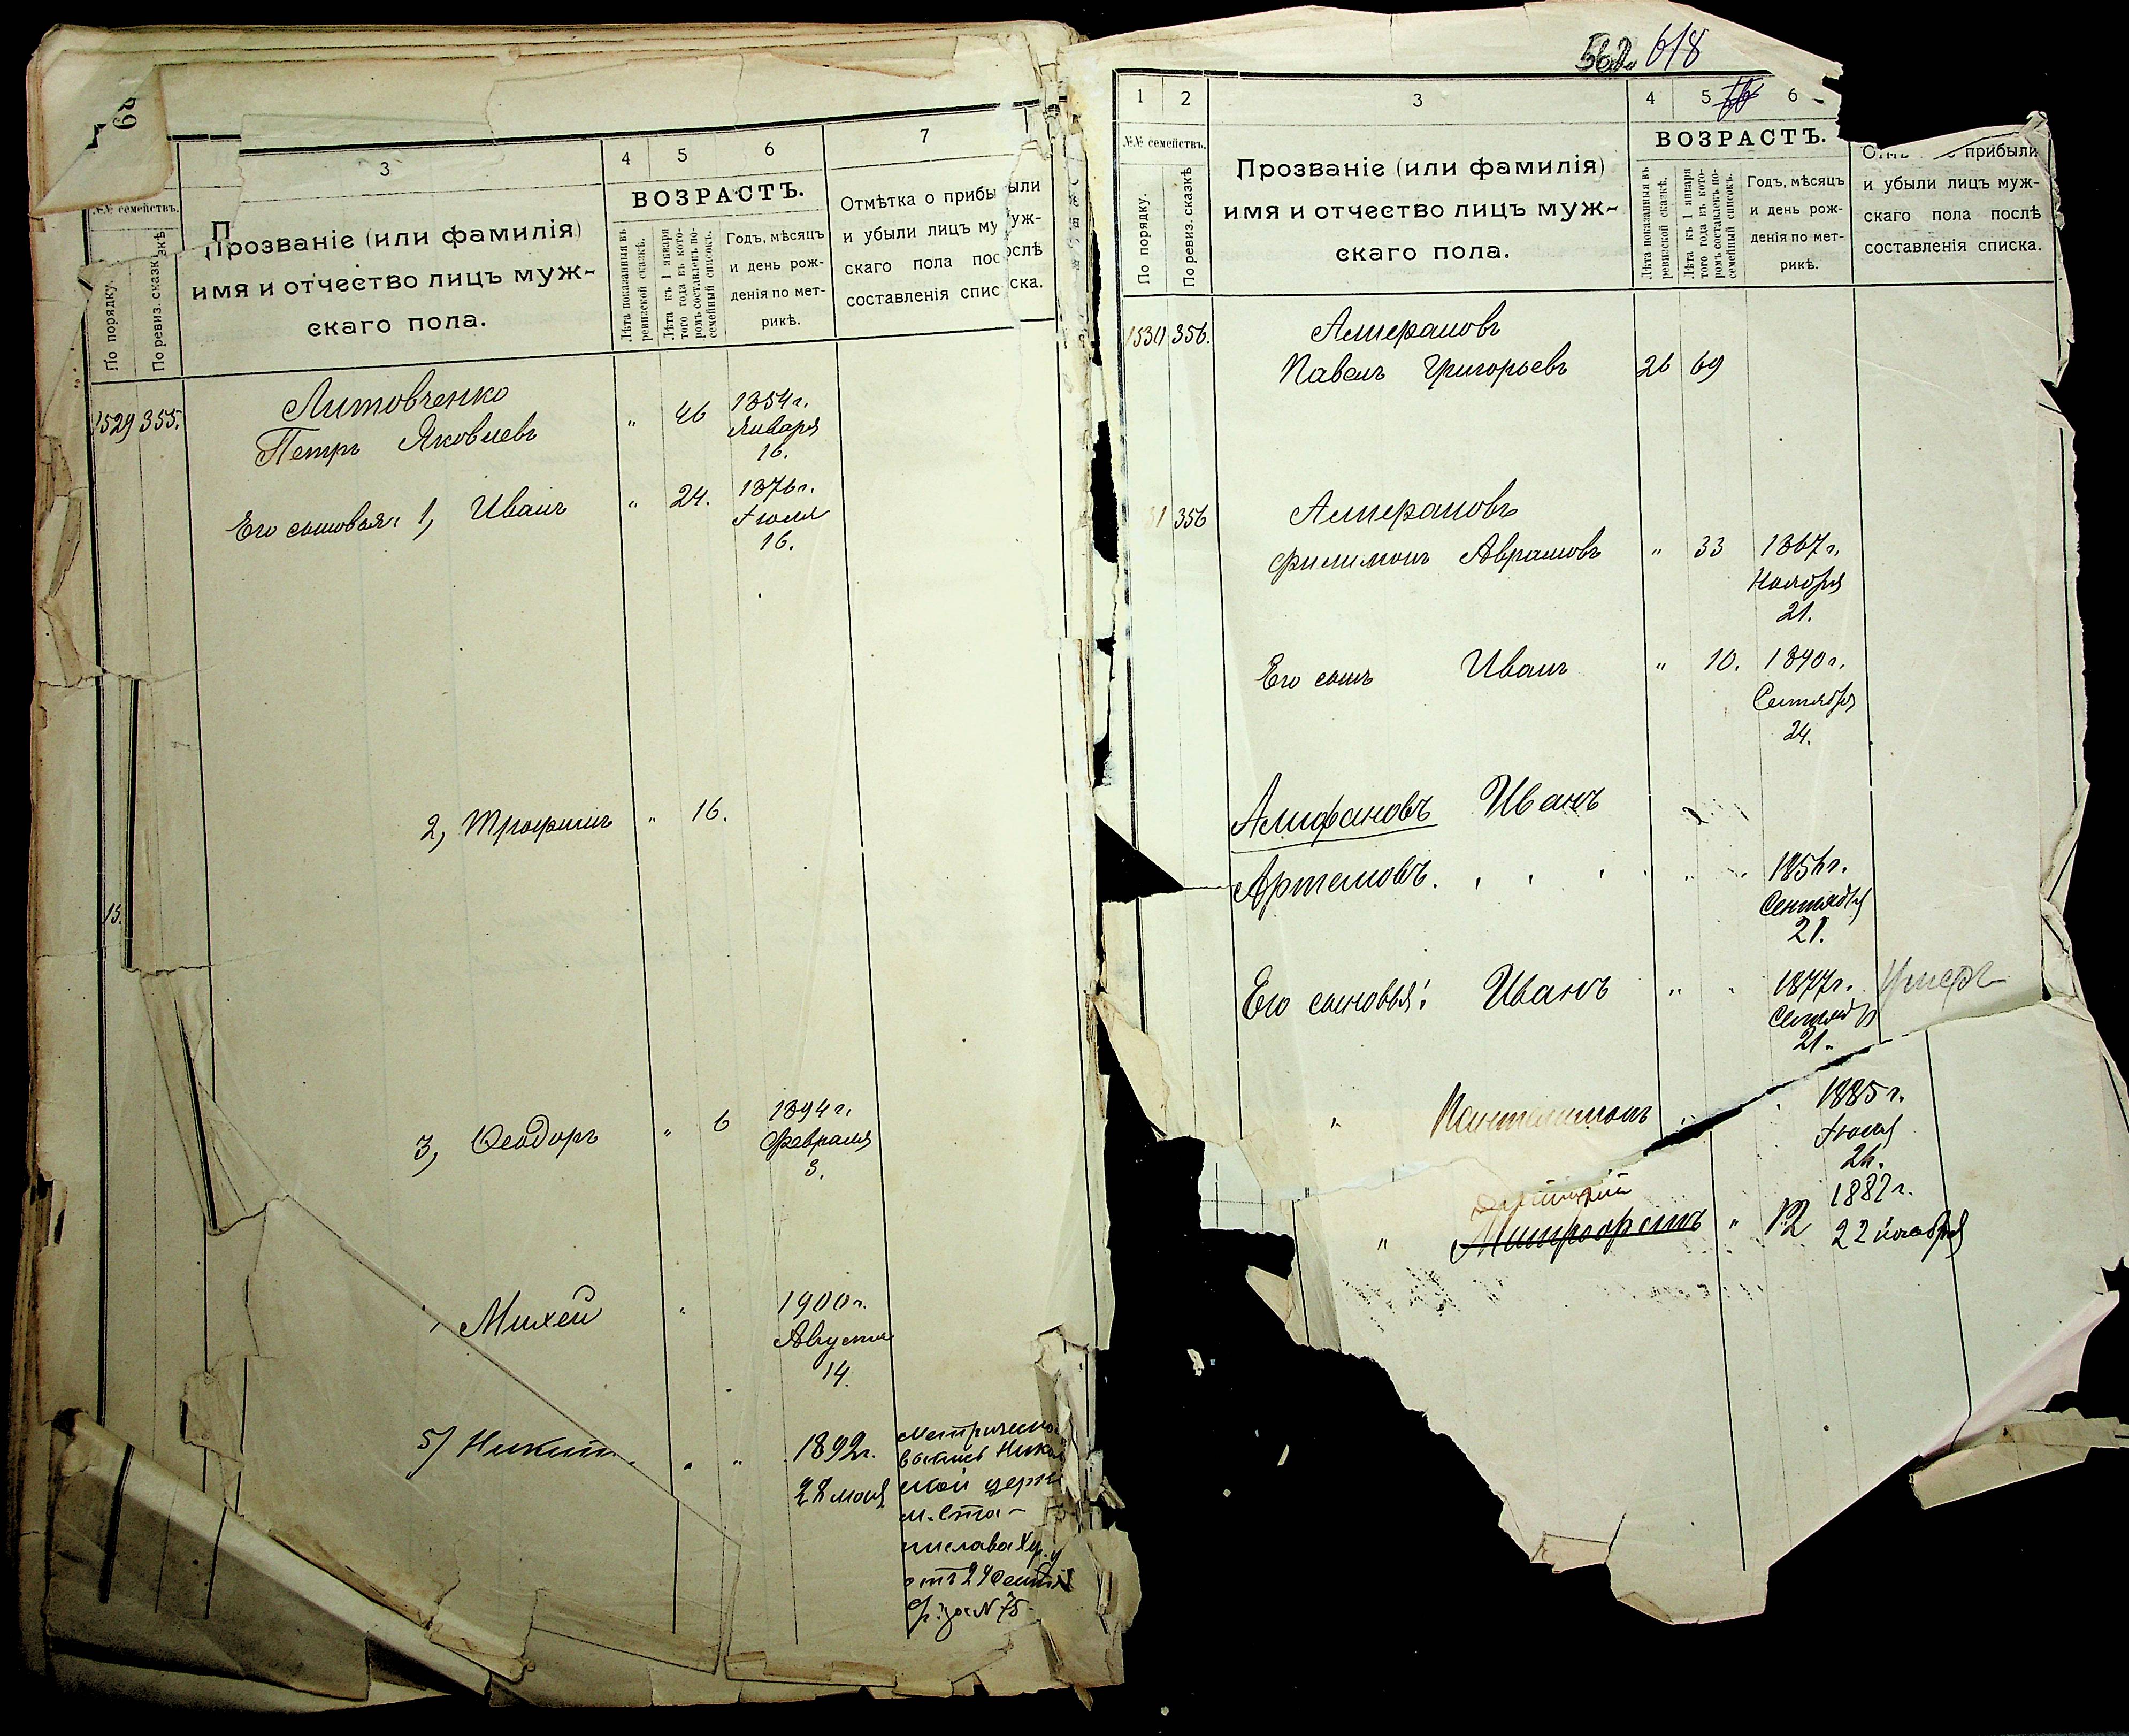 3
4
5
6
7
№№ семействъ.
По порядку.
По ревиз. сказкѣ
Прозваніе (или фамилія)
имя и отчество лицъ муж-
скаго пола.
ВОЗРАСТЪ.
Лѣта показанныя въ
ревизской сказкѣ.
Лѣта къ 1 января
того года въ кото-
ромъ составленъ по-
семейный списокъ.
Годъ, мѣсяцъ
и день рож-
денія по мет-
рикѣ.
Отмѣтка о прибыли
и убыли лицъ муж-
скаго пола послѣ
составленія списка.
1529 355.
Литовченко
Петръ Яковлевъ " 46 1854 г.
Января
16.
Его сыновья: 1, Иванъ " 24. 1876 г.
Іюля
16.
2, Трофимъ " 16.
15.
3, Ѳеодоръ " 6 1894 г.
Февраля
3.
Михей " 1900 г.
Августа
14.
5) Никита " 1892 г.
28 мая
м. Ста-
618
1
2
3
4
5
6
№№ семействъ.
По порядку.
По ревиз. сказкѣ
Прозваніе (или фамилія)
имя и отчество лицъ муж-
скаго пола.
ВОЗРАСТЪ.
Лѣта показанныя въ
ревизской сказкѣ.
Лѣта къ 1 января
того года въ кото-
ромъ составленъ по-
семейный списокъ.
Годъ, мѣсяцъ
и день рож-
денія по мет-
рикѣ.
прибыли
и убыли лицъ муж-
скаго пола послѣ
составленія списка.
1530 356.
Павелъ Григорьевъ 26 69
31 356
Филимонъ Аврамовъ " 33 1867 г.
Ноября
21.
Его сынъ Иванъ " 10. 1890 г.
Сентября
24.
Алифановъ Иванъ
Артемовъ. 1856 г.
Сентября
21.
Его сыновья: Иванъ " 1877 г. Умеръ
Сентября
21.
" Пантелимонъ 1885 г.
Іюля
24.
Дмитрій
" Митрофанъ " 12 1882 г.
22 ноября